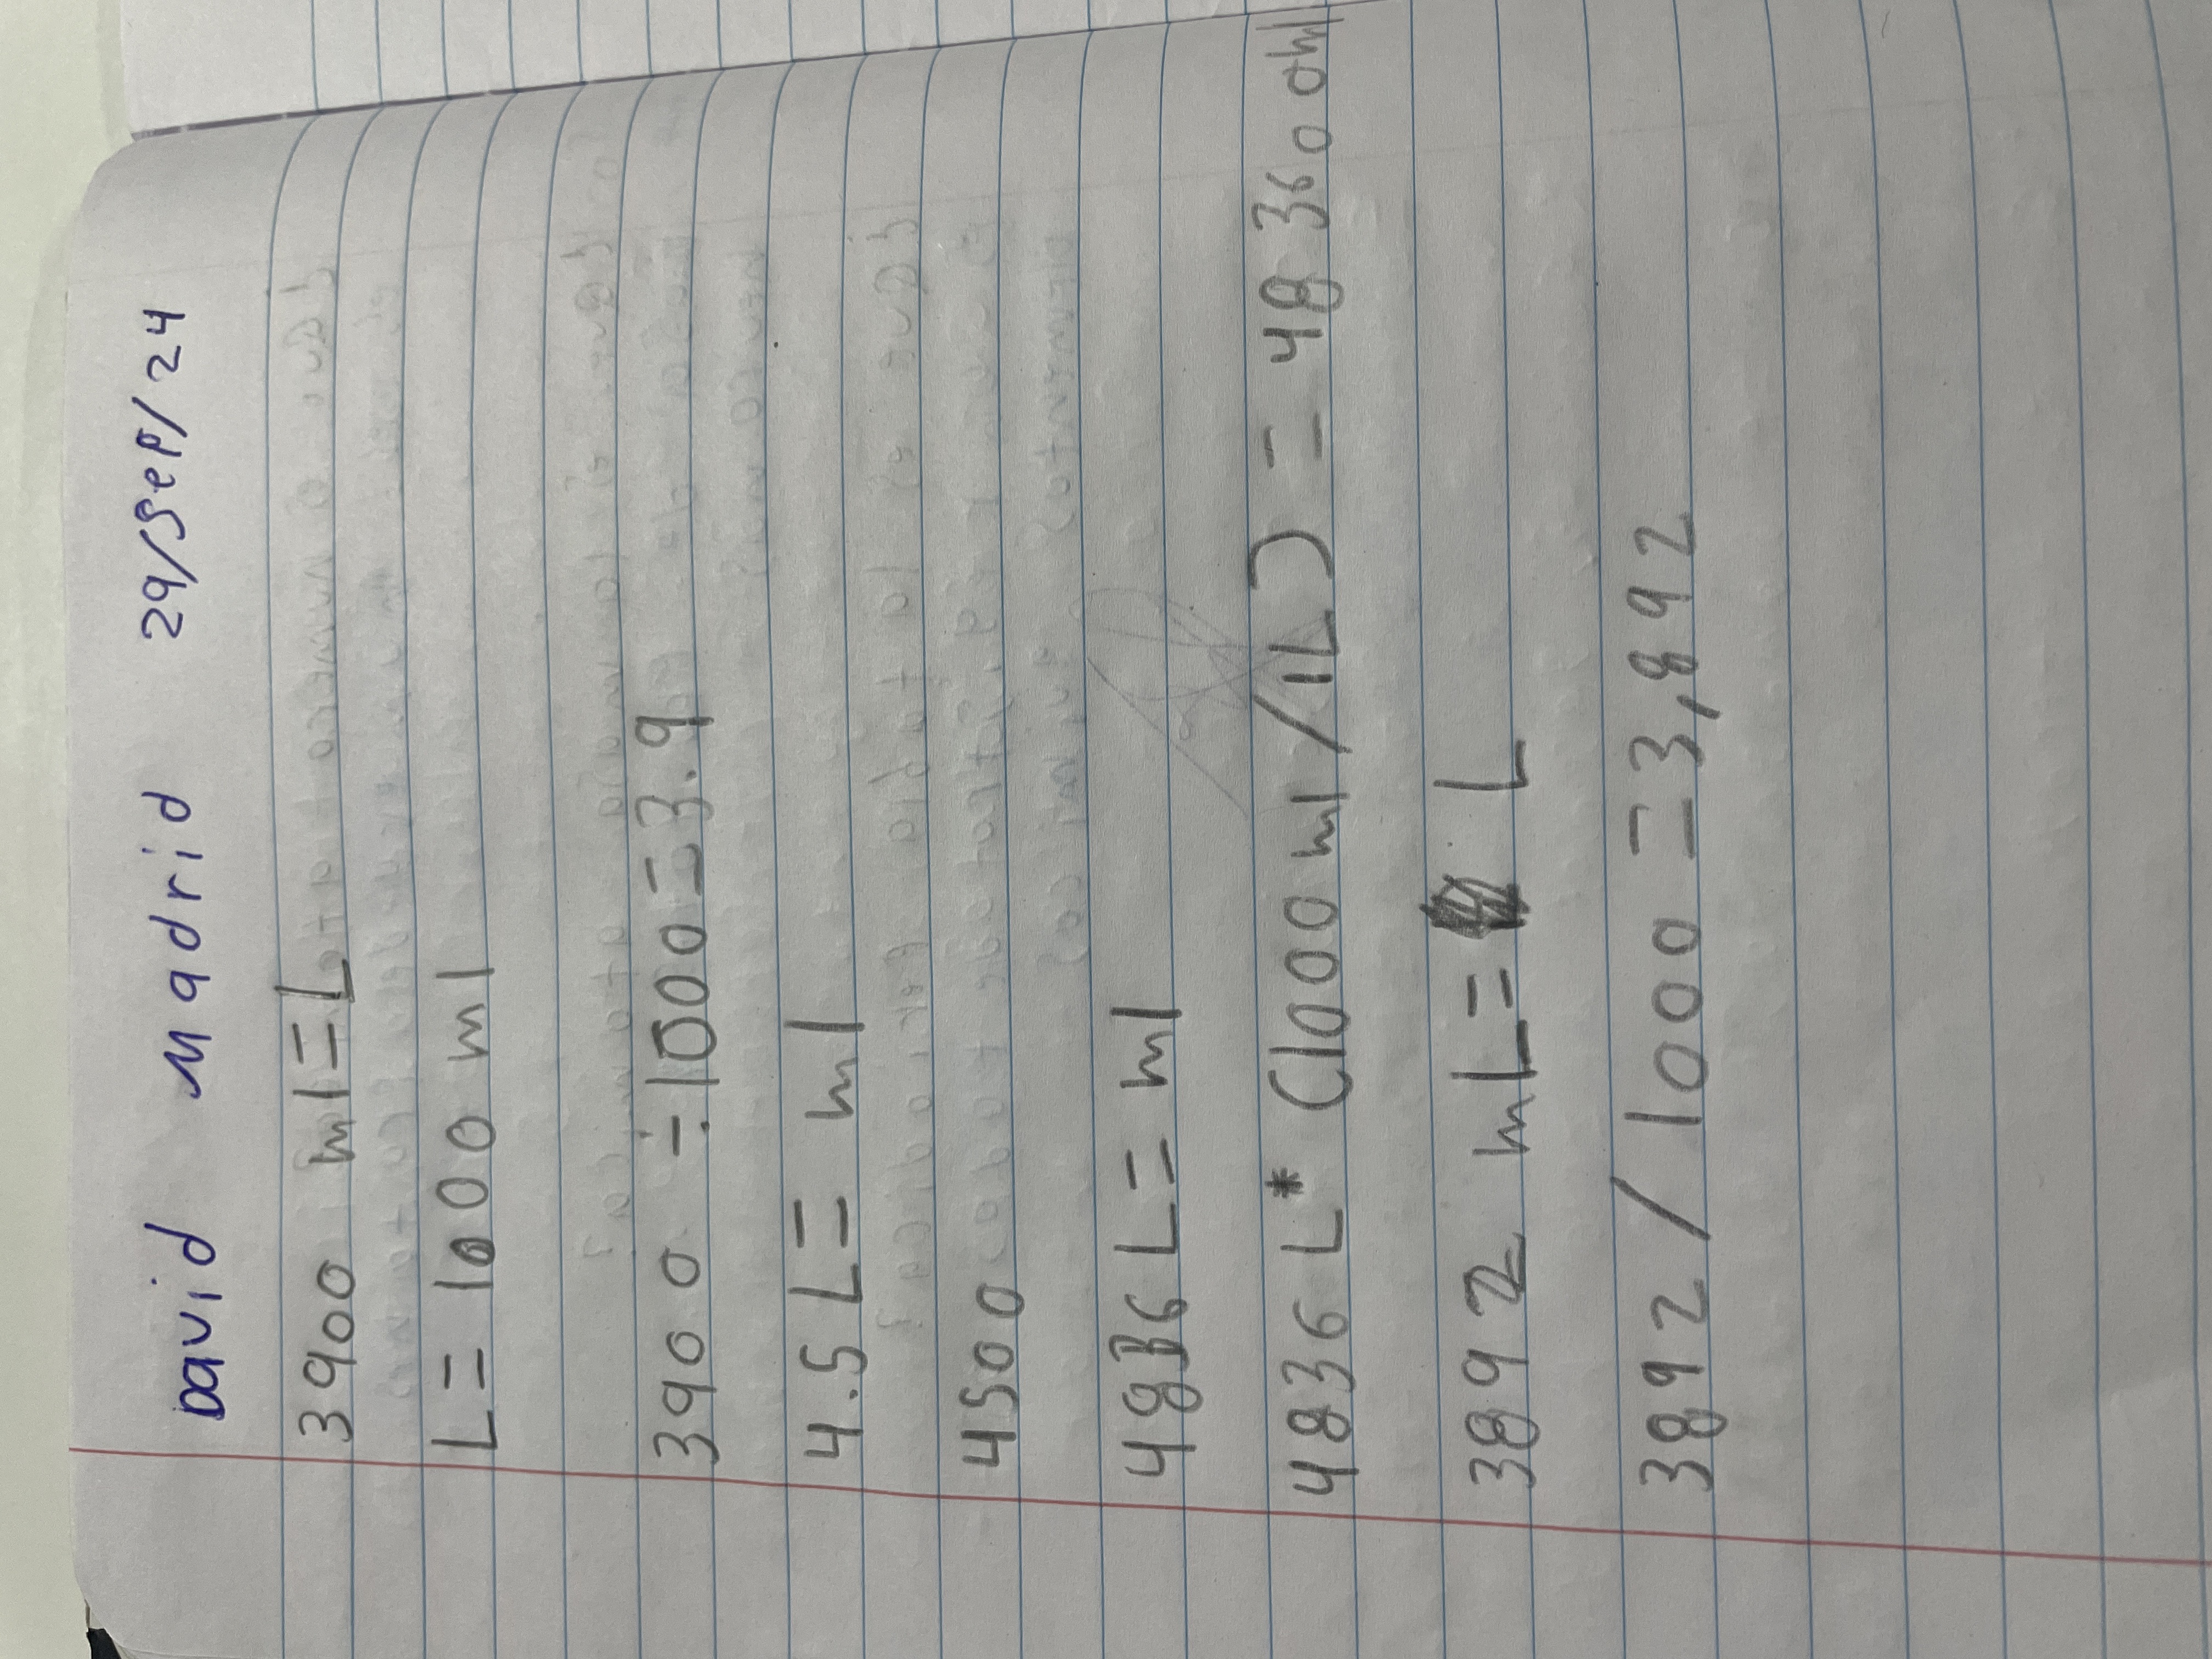 David Madrid 29/Sep/24
3900 ml = L
L = 1000 ml
3900 ÷ 1000 = 3.9
4.5 L = ml
4500
4836 L = ml
4836 L * (1000 ml / 1L) = 48360 0ml
3892 mL = L
3892 / 1000 = 3,892